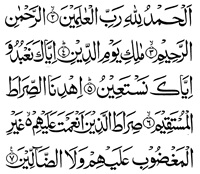 اَلْحَمْدُ لِلّٰهِ رَبِّ الْعٰلَمِيْنَ ۝٢ الرَّحْمٰنِ
الرَّحِيْمِ ۝٣ مٰلِكِ يَوْمِ الدِّيْنِ ۝٤ اِيَّاكَ نَعْبُدُ وَ
اِيَّاكَ نَسْتَعِيْنُ ۝٥ اِهْدِنَا الصِّرَاطَ
الْمُسْتَقِيْمَ ۝٦ صِرَاطَ الَّذِيْنَ اَنْعَمْتَ عَلَيْهِمْ ۝٥ غَيْرِ
الْمَغْضُوْبِ عَلَيْهِمْ وَلَا الضَّآلِّيْنَ ۝٧